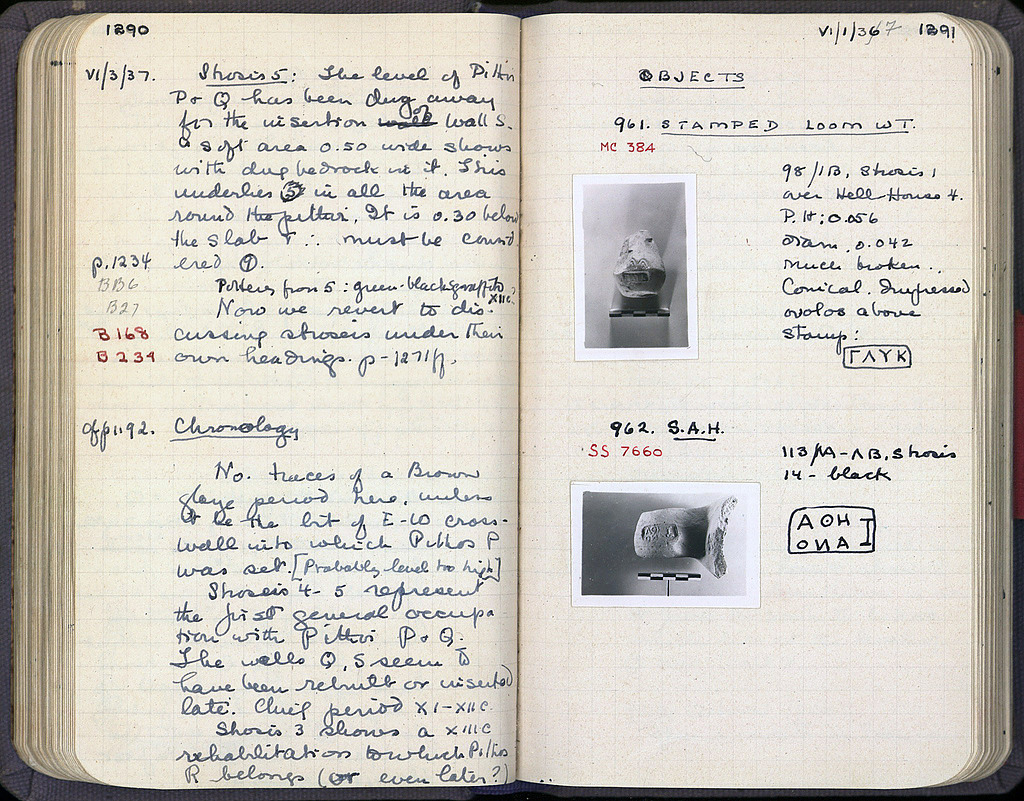 1290
VI/3/37. Strosis 5: The level of Pithoi
P & Q has been dug away
for the insertion of Wall S.
A soft area 0.50 wide shows
with dug bedrock in it. This
underlies 5 in all the area
round the pithoi. It is 0.30 below
the slab T ∴ must be consid
p.1234 ered
BB6 Potteries from 5: green-black sgraffito XIIc?
B27 Now we revert to dis-
B168 cussing stroseis under their
B234 own headings. p-1271ff.
cf p1192. Chronology
No traces of a Brown
glaze period here, unless
it be the bit of E-W cross-
wall into which Pithos P
was set. [Probably level too high]
Stroseis 4-5 represent
the first general occupa
tion with Pithoi P & Q.
The walls Q, S seem to
have been rebuilt or inserted
late. Chief period XI-XII c.
Strosis 3 shows a XIII c
rehabilitation to which Pithos
R belongs (or even later?)
VI/1/367 1291
OBJECTS
961. STAMPED LOOM WT.
MC 384
98/ΙΒ, Strosis 1
over Hell-House 4.
P. Ht; 0.056
diam. 0.042
Much broken.
Conical. Impressed
ovolos above
stamp:
ΓΛΥΚ
962. S.A.H.
SS 7660
113/ΛΑ-ΛΒ, Strosis
14 - black
ΑΘΗ
ΟΝΑΙ